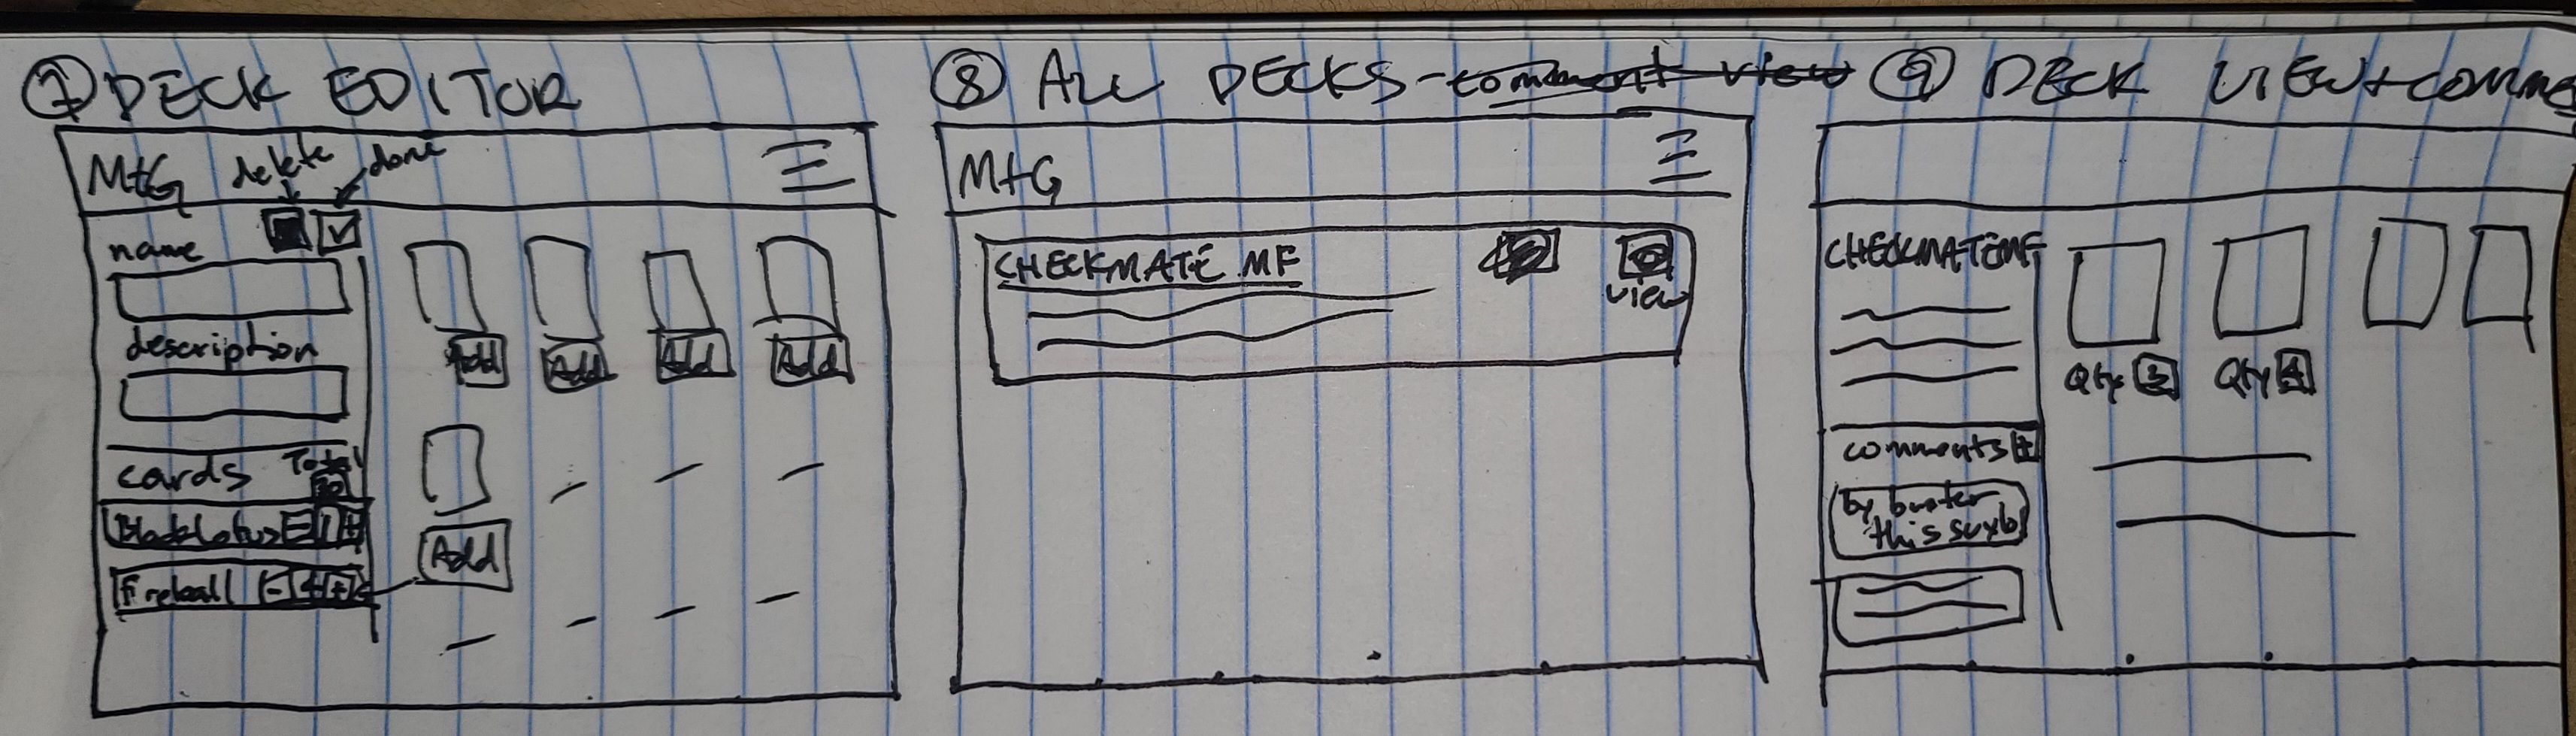 7 DECK EDITOR
MtG delete done
name
description
cards Total
Add Add Add Add
Black Lotus - 1 +
Fireball - 4 +
Add
8 ALL DECKS - comment view
MtG
CHECKMATE MF
view
9 DECK VIEW + comme
CHECKMATE MF
Qty 3 Qty 4
comments +
by buster